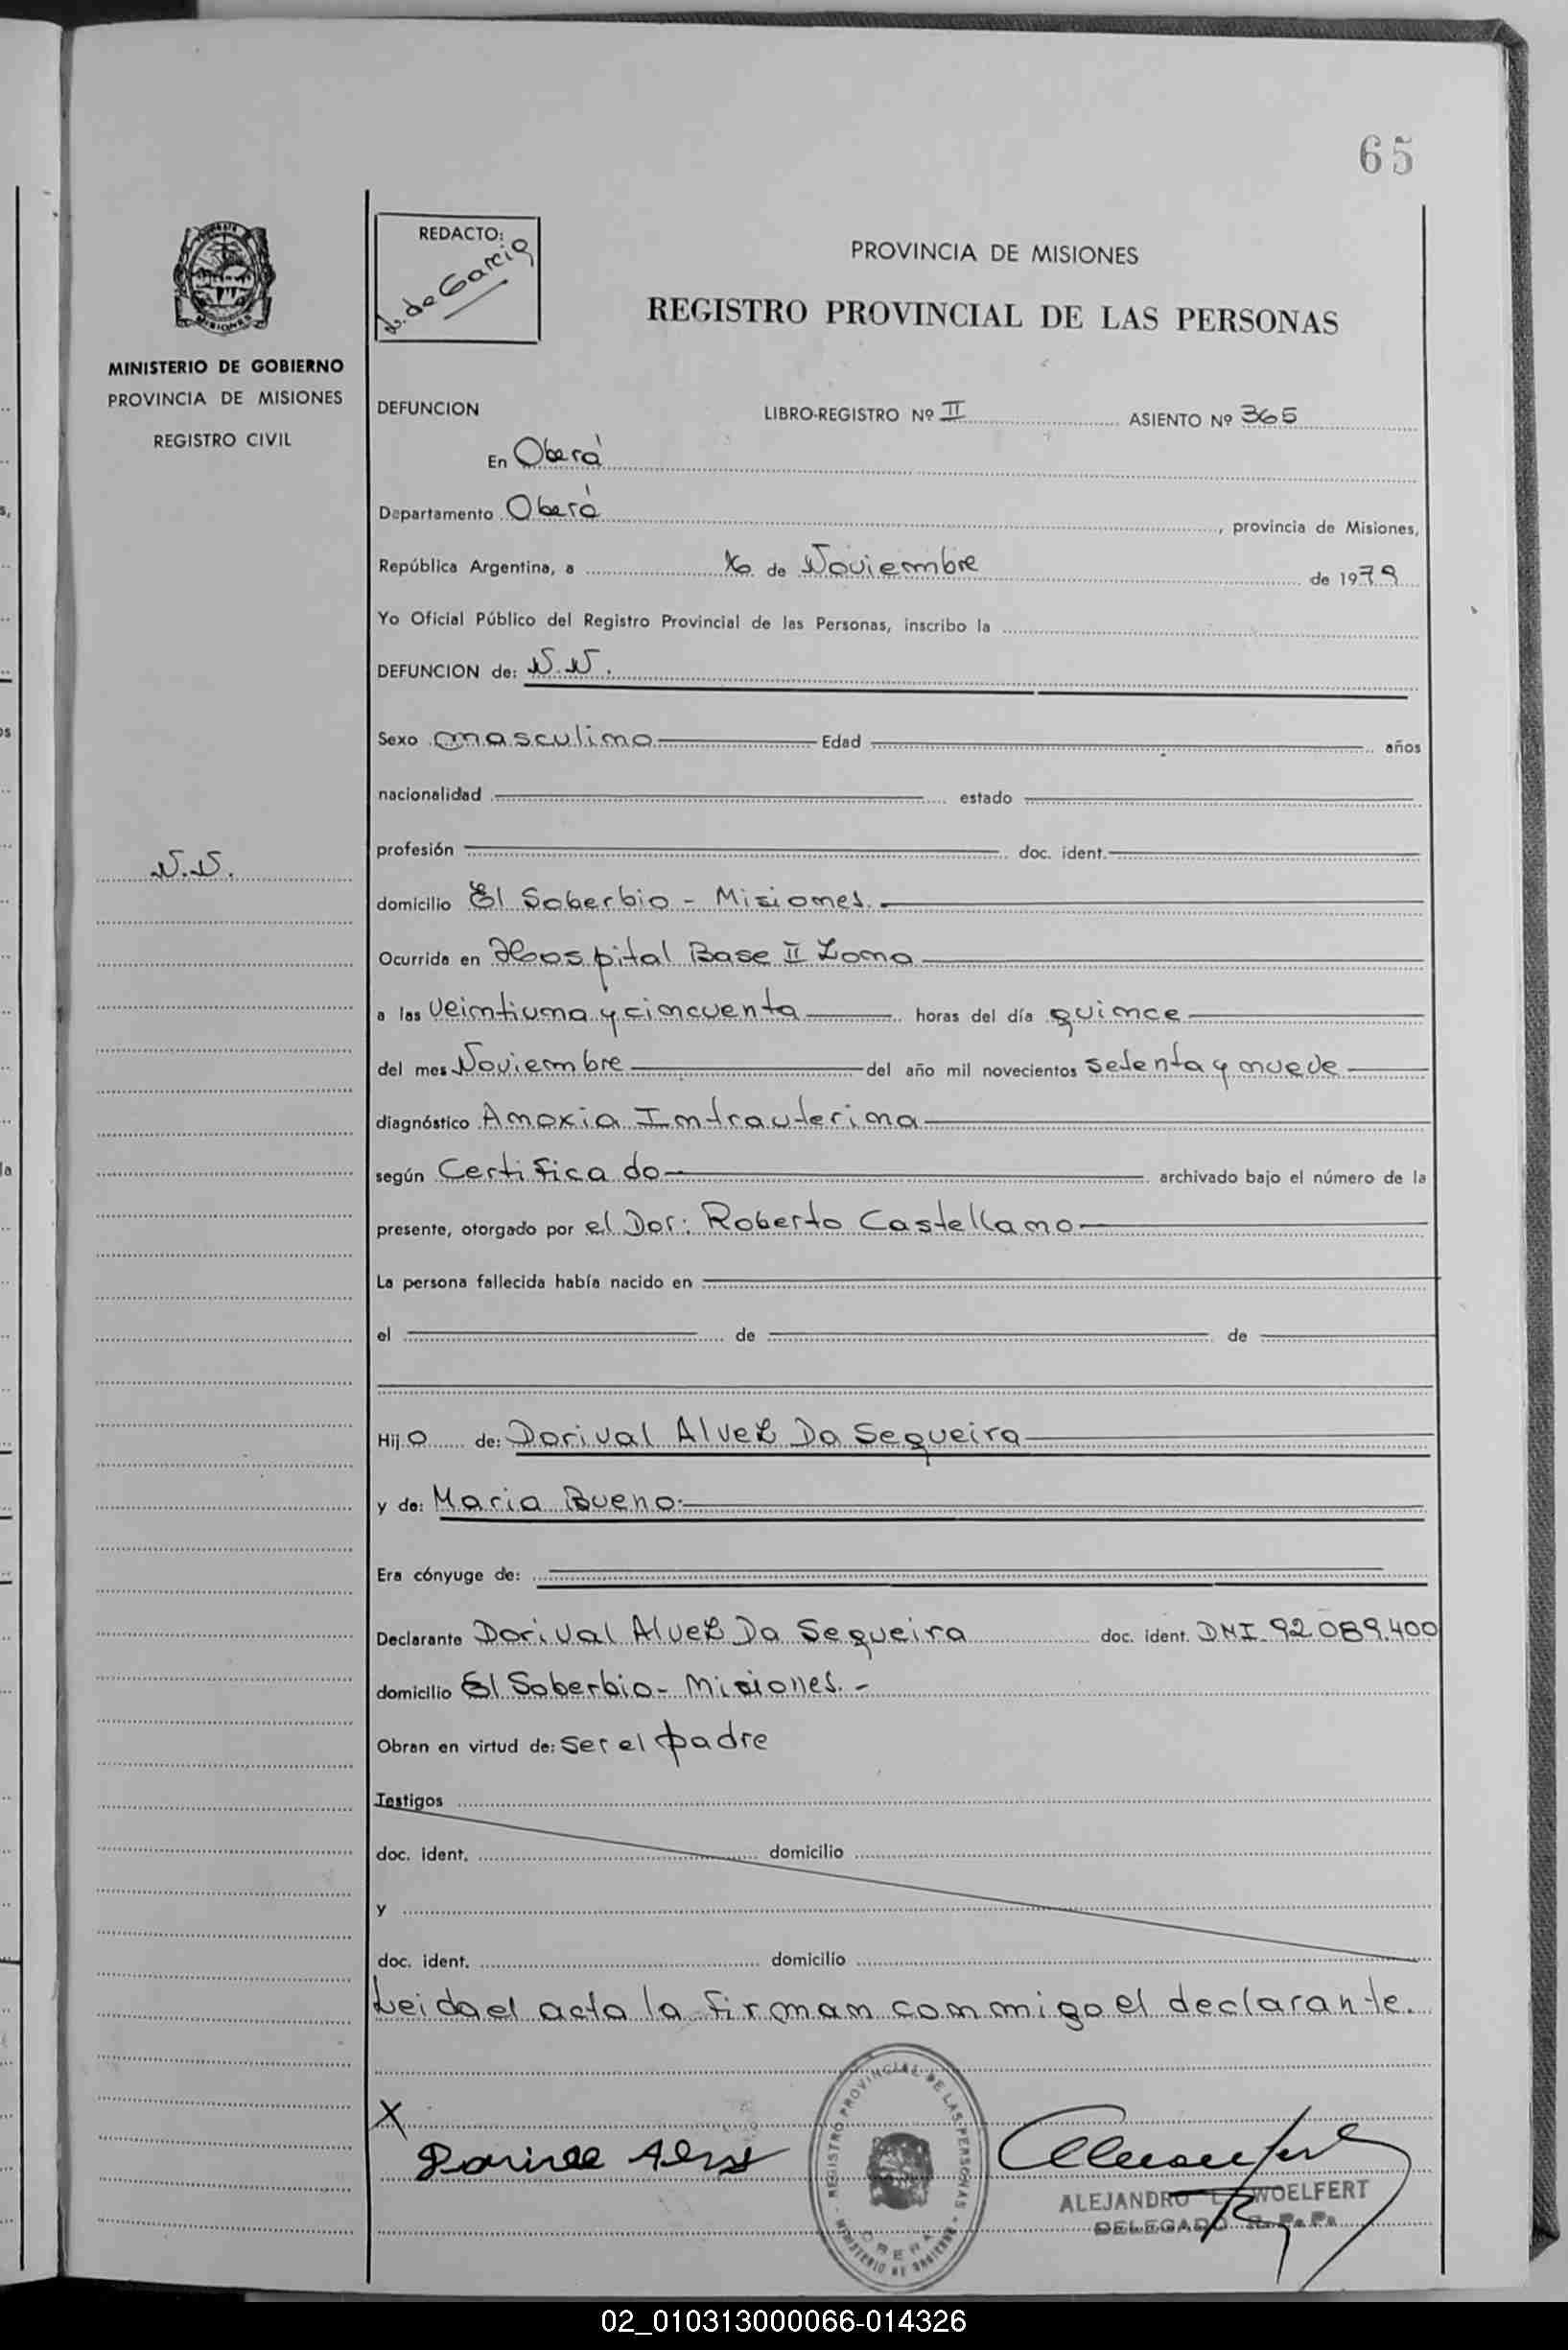 65
REDACTO:
N. de Garcia
PROVINCIA DE MISIONES
REGISTRO PROVINCIAL DE LAS PERSONAS
MISIONES
MINISTERIO DE GOBIERNO
PROVINCIA DE MISIONES
REGISTRO CIVIL
DEFUNCION LIBRO-REGISTRO Nº II ASIENTO Nº 365
En Oberá
Departamento Oberá, provincia de Misiones,
República Argentina, a 16 de Noviembre de 1979
Yo Oficial Público del Registro Provincial de las Personas, inscribo la
DEFUNCION de: N.N.
Sexo masculino Edad años
nacionalidad estado
profesión doc. ident.
N.N.
domicilio El Soberbio - Misiones.
Ocurrida en Hospital Base II Zona
a las veintiuna y cincuenta horas del día quince
del mes Noviembre del año mil novecientos setenta y nueve
diagnóstico Anoxia Intrauterina
según Certificado archivado bajo el número de la
presente, otorgado por el Dor: Roberto Castellano
La persona fallecida había nacido en
el de de
Hijo de: Dorival Alvez Da Sequeira
y de: Maria Bueno.
Era cónyuge de:
Declarante Dorival Alvez Da Sequeira doc. ident. DNI 92.089.400
domicilio El Soberbio - Misiones. -
Obran en virtud de: ser el padre
Testigos
doc. ident. domicilio
y
doc. ident. domicilio
Leida el acta la firman conmigo el declarante.
X
REGISTRO PROVINCIAL DE LAS PERSONAS
MINISTERIO DE GOBIERNO
OBERA
ALEJANDRO L. WOELFERT
DELEGADO R. P. P.
02_010313000066-014326